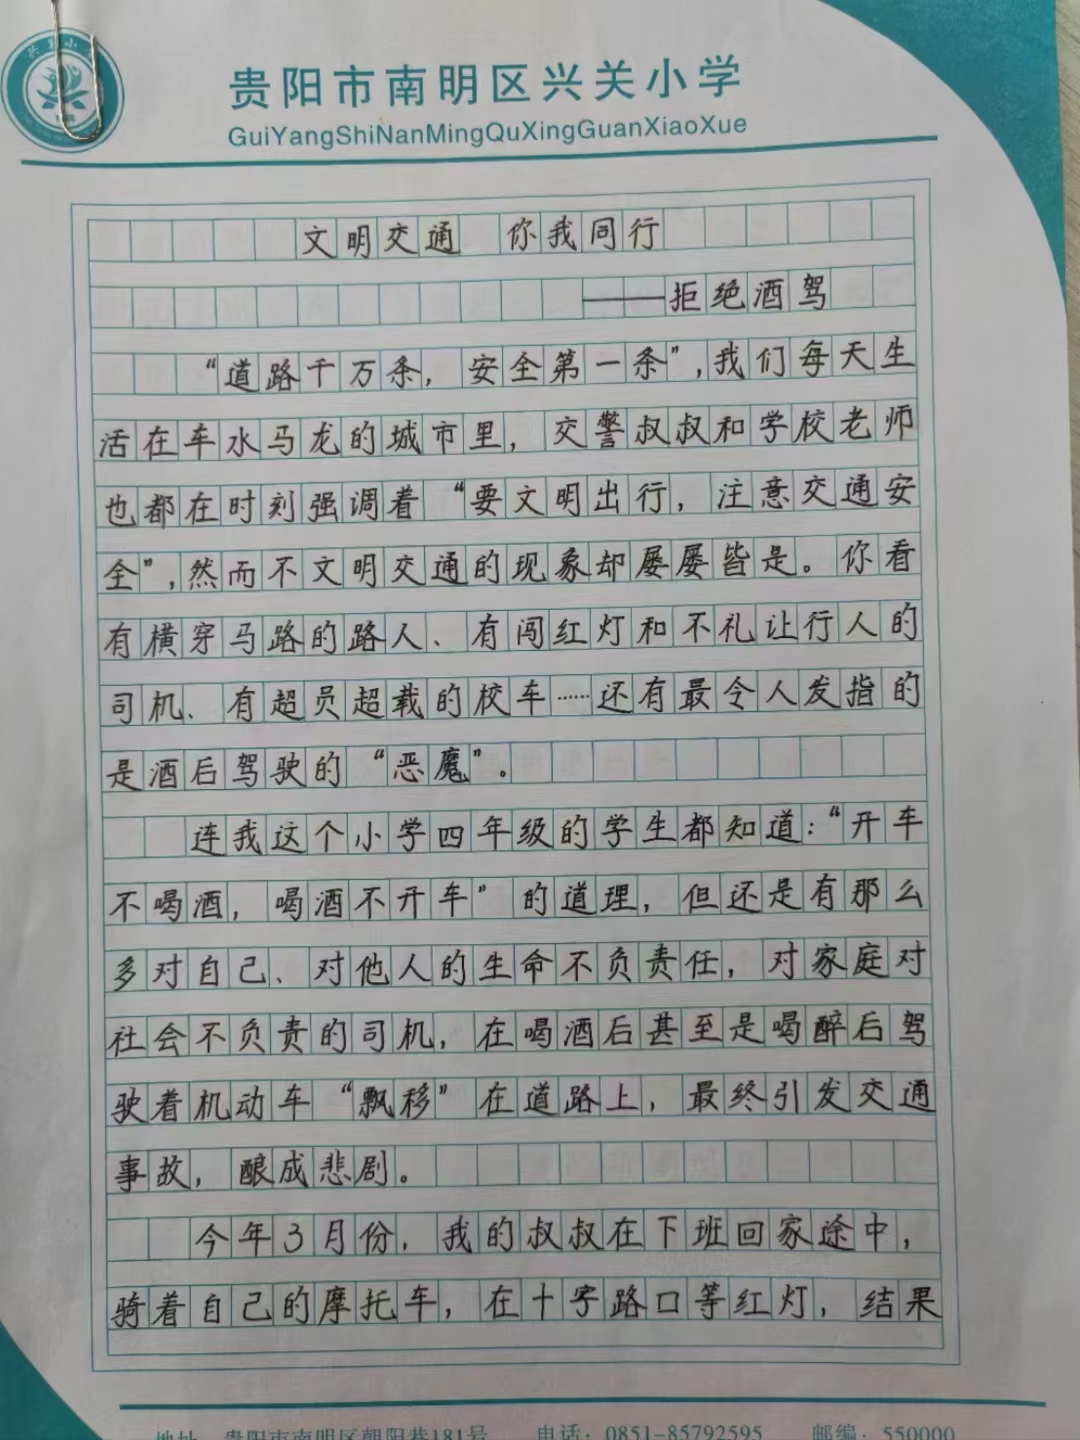 贵阳市南明区兴关小学
GuiYangShiNanMingQuXingGuanXiaoXue
文明交通 你我同行
——拒绝酒驾
“道路千万条，安全第一条”，我们每天生
活在车水马龙的城市里，交警叔叔和学校老师
也都在时刻强调着“要文明出行，注意交通安
全”，然而不文明交通的现象却屡屡皆是。你看
有横穿马路的路人、有闯红灯和不礼让行人的
司机、有超员超载的校车……还有最令人发指的
是酒后驾驶的“恶魔”。
连我这个小学四年级的学生都知道：“开车
不喝酒，喝酒不开车”的道理，但还是有那么
多对自己、对他人的生命不负责任，对家庭对
社会不负责的司机，在喝酒后甚至是喝醉后驾
驶着机动车“飘移”在道路上，最终引发交通
事故，酿成悲剧。
今年3月份，我的叔叔在下班回家途中，
骑着自己的摩托车，在十字路口等红灯，结果
地址：贵阳市南明区朝阳巷181号 电话：0851-85792595 邮编：550000